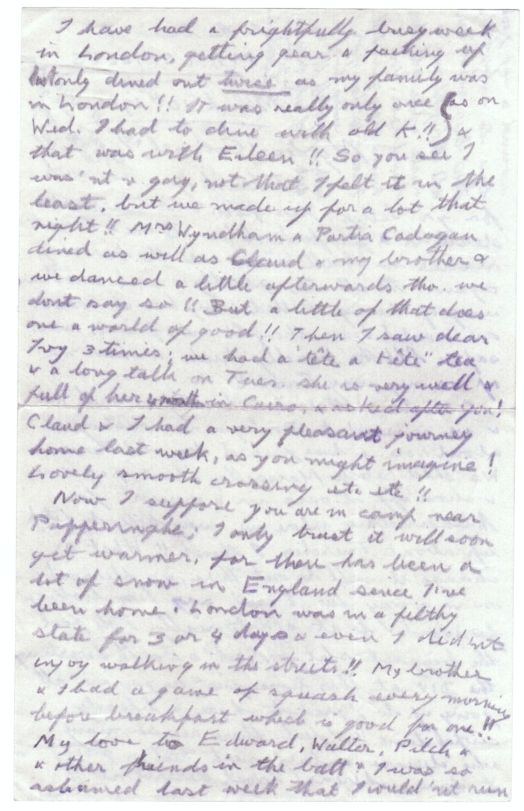 I have had a frightfully busy week
in London, getting gear & packing up
but only dined out twice as my family was
in London!! It was really only once } as on
Wed. I had to dine with old K.!! &
that was with Eileen!! So you see I
was'nt v gay, not that I felt it in the
least, but we made up for a lot that
night!! Mrs Wyndham & Portia Cadogan
dined as well as Claud & my brother &
we danced a little afterwards tho. we
dont say so!! But a little of that does
one a world of good!! Then I saw dear
Ivy 3 times; we had a tête a tête" tea
& a long talk on Tues. She is very well &
full of her month in Cairo, & asked after you!
Claud & I had a very pleasant journey
home last week, as you might imagine!
Lovely smooth crossing etc etc!!
Now I suppose you are in camp near
Popperinghe, I only trust it will soon
get warmer, for there has been a
lot of snow in England since I've
been home. London was in a filthy
state for 3 or 4 days & even I did'nt
enjoy walking in the streets!! My brother
& I had a game of squash every morning
before breakfast which is good for one!!
My love to Edward, Walter, Pilch &
& other friends in the batt. I was so
ashamed last week that I would'nt run